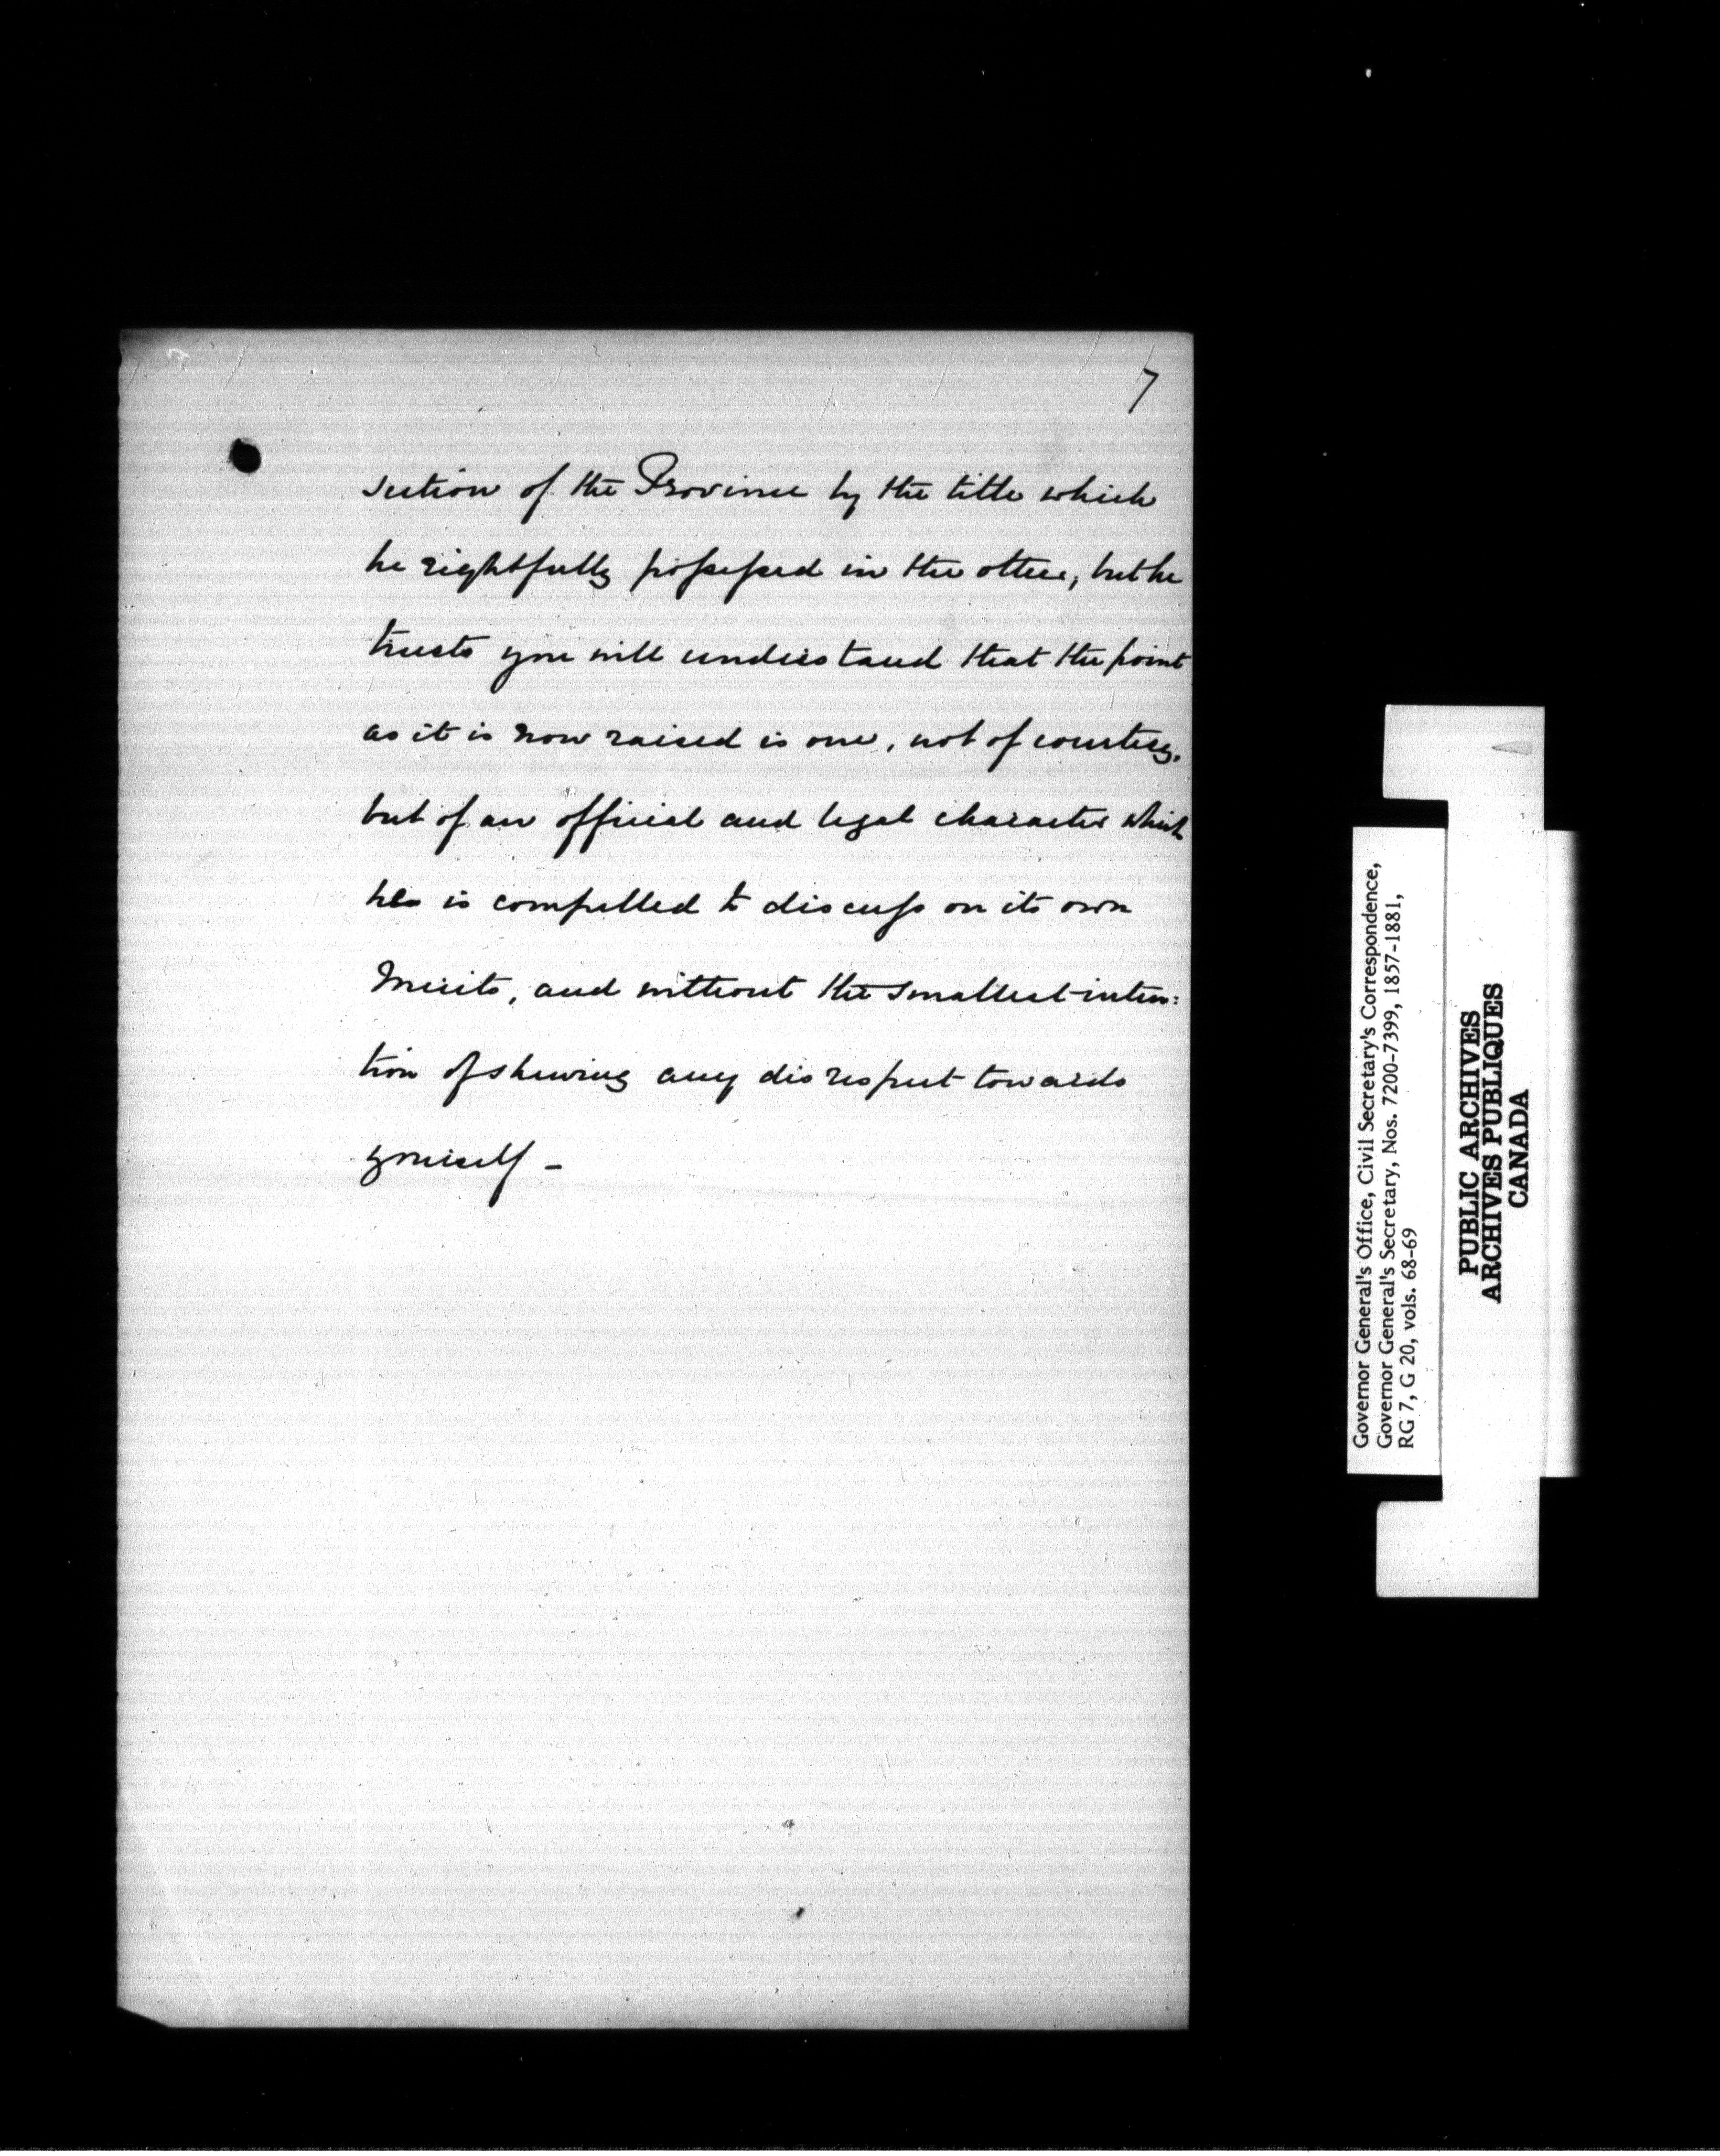 7
section of the Province by the title which
he rightfully possessed in the other, but he
trusts you will understand that the point
as it is now raised is one, not of courtesy,
but of an official and legal character which
he is compelled to discuss on its own
Merits, and without the smallest inten:
tion of shewing any disrespect towards
yourself –
Governor General's Office, Civil Secretary's Correspondence,
Governor General's Secretary, Nos. 7200-7399, 1857-1881,
RG 7, G 20, vols. 68-69
PUBLIC ARCHIVES
ARCHIVES PUBLIQUES
CANADA